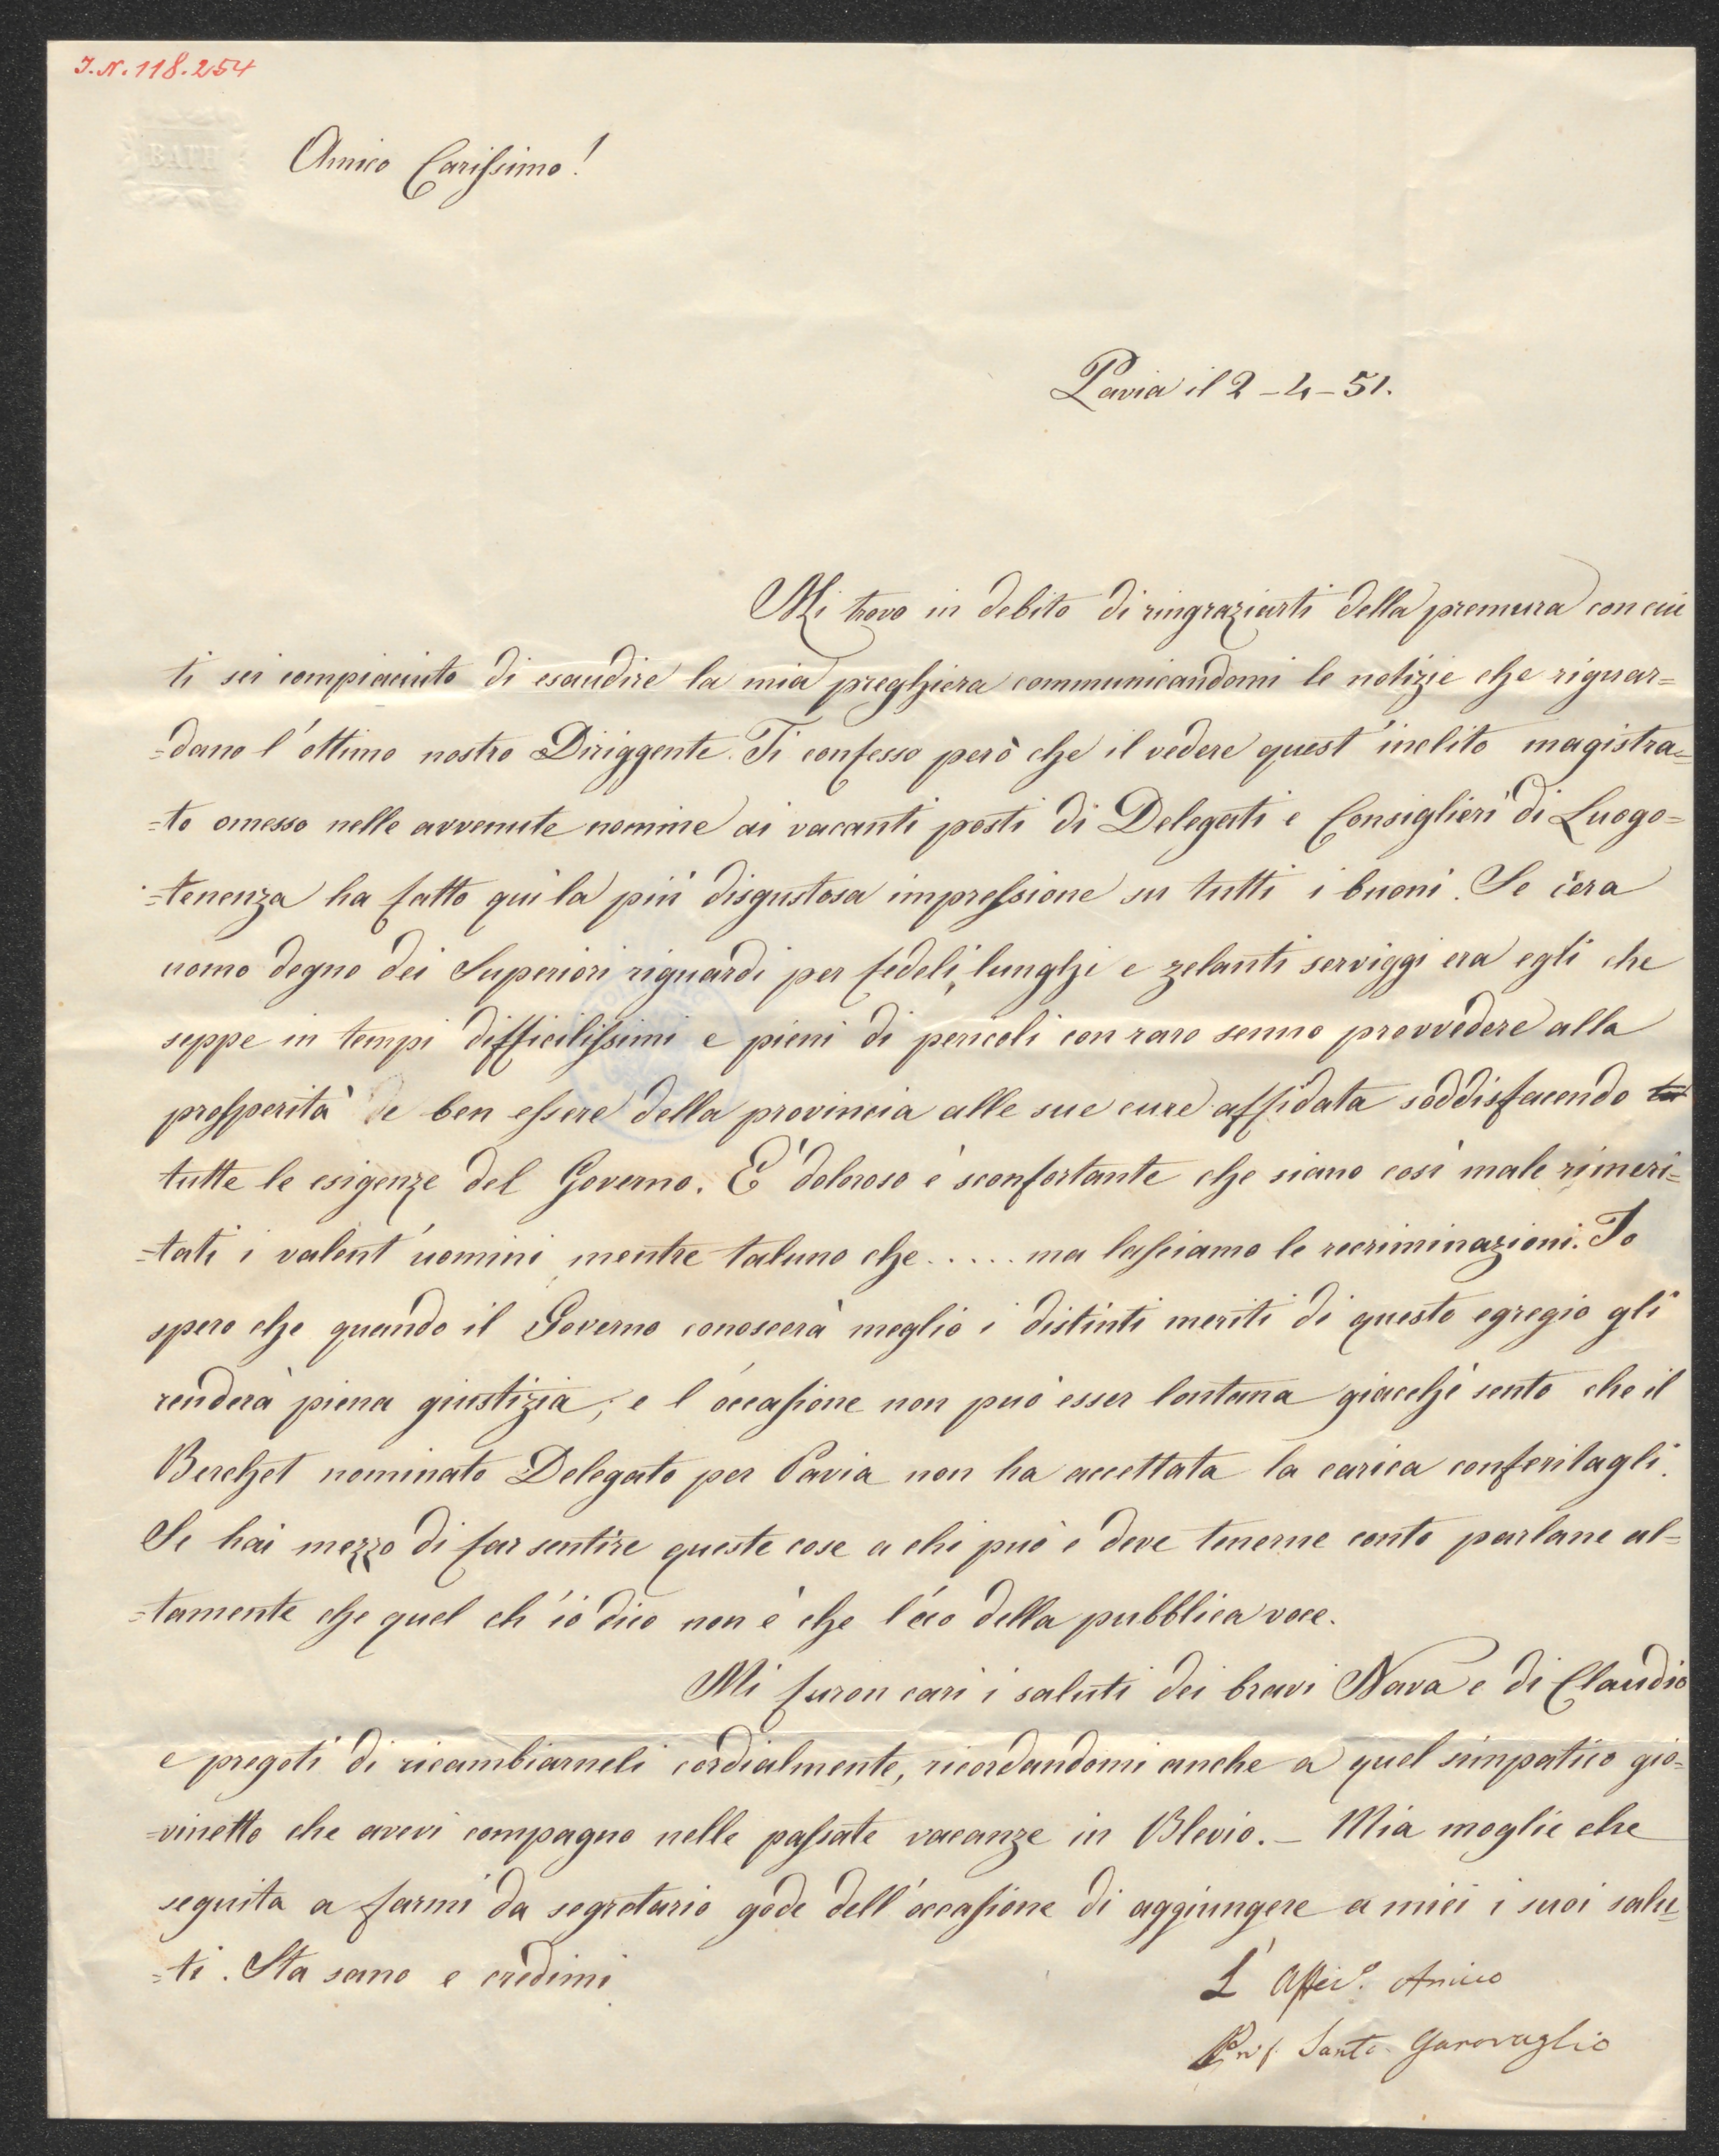 I.N. 118.254
BATH
Amico Carissimo!
Pavia il 2-4-51.
Mi trovo in debito di ringraziarti della premura con cui
ti sei compiaciuto di esaudire la mia preghiera communicandomi le notizie che riguar=
=dano l'ottimo nostro Diriggente. Ti confesso però che il vedere quest'inclito magistra=
=to omesso nelle avvenute nomine ai vacanti posti di Delegati e Consiglieri di Luogo=
=tenenza ha fatto quì la più disgustosa impressione su tutti i buoni. Se c'era
uomo degno dei Superiori riguardi per fedeli, lunghi e zelanti serviggi era egli che
seppe in tempi difficilissimi e pieni di pericoli con raro senno provvedere alla
prosperità e ben essere della provincia alle sue cure affidata soddisfacendo
tutte le esigenze del Governo. E' doloroso e sconfortante che siano così male rimeri=
=tati i valent'uomini mentre taluno che ..... ma lasciamo le recriminazioni. Io
spero che quando il Governo conoscerà meglio i distinti meriti di questo egregio gli
renderà piena giustizia; e l'occasione non può esser lontana giacchè sento che il
Berchet nominato Delegato per Pavia non ha accettata la carica conferitagli.
Se hai mezzo di far sentire queste cose a chi può e deve tenerne conto parlane al=
=tamente che quel ch'io dico non è che l'eco della pubblica voce.
Mi furon cari i saluti dei bravi Nava e di Claudio
e pregoti di ricambiarneli cordialmente, ricordandomi anche a quel simpatico gio=
=vinetto che avevi compagno nelle passate vacanze in Blevio. - Mia moglie che
seguita a farmi da segretario gode dell'occasione di aggiungere a miei i suoi salu=
=ti. Sta sano e credimi
L' Affez.º Amico
Prof. Santo Garovaglio